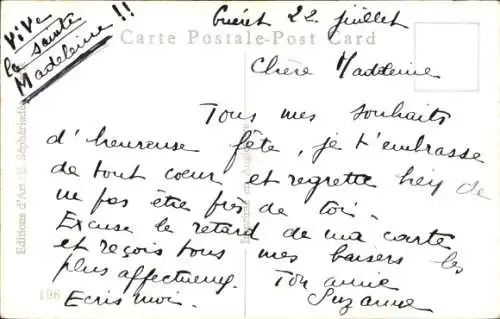 Vive
la sainte
Madeleine !!
Guéret 22 juillet
Carte Postale-Post Card
Chère Madeleine
Tous mes souhaits
d'heureuse fête, je t'embrasse
de tout coeur et regrette de
ne pas être près de toi.
Excuse le retard de ma carte
et reçois tous mes baisers les
plus affectueux. Ton amie
Ecris moi. Suzanne
Editions d'Art : E. Séphériadès
196